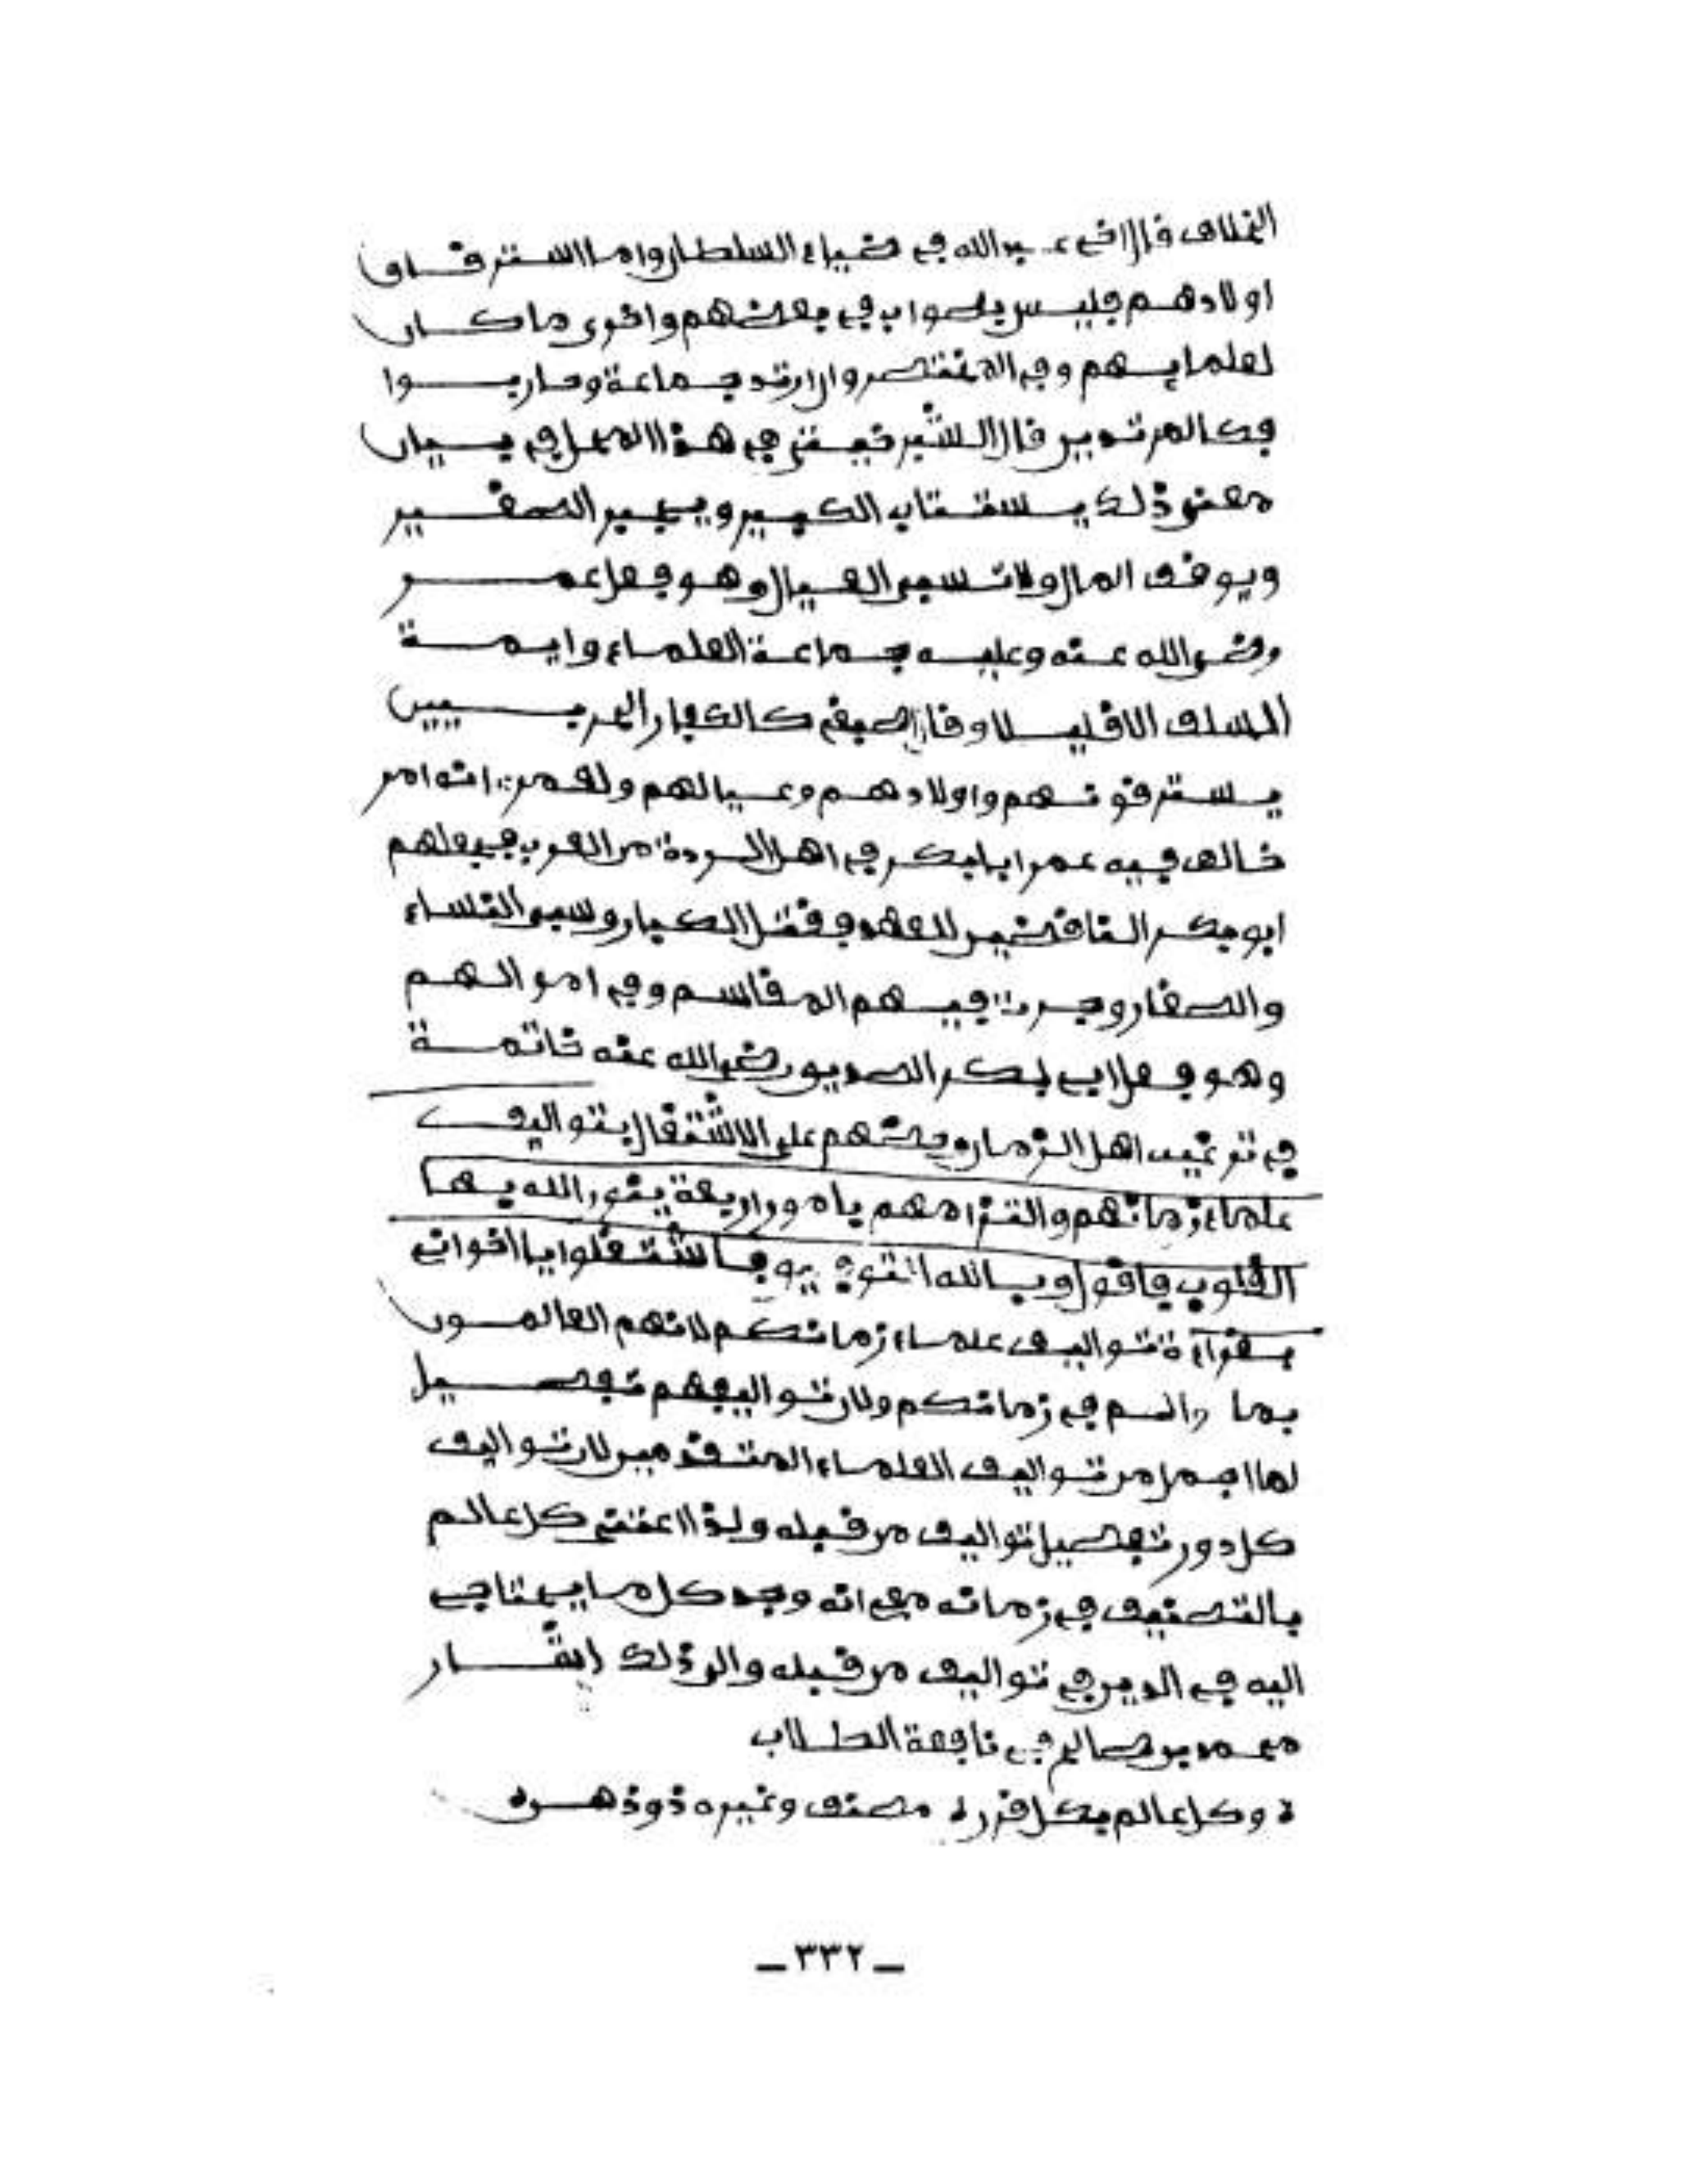 الخلاف قال اخي عبد الله في ضياء السلطان واما استرقاق
اولادهم فليس بصواب في بعضهم واقوى ما كان
لعلمايهم وفي المختصر وان ارتد جماعة وحاربوا
فكالمرتدين قال الشبرخيتي في هذا المحل في بيان
معنى ذلك يستتاب الكبير ويجبر الصغير
ويوقف المال ولا تسبى العيال وهو فعل عمر
رضي الله عنه وعليه جماعة العلماء وايمة
السلف الا قليلا وقال اصبغ كالكفار الحربيين
يسترقونهم واولادهم وعيالهم ولعمرى انه امر
خالف فيه عمر ابا بكر في اهل الردة من العرب فجعلهم
ابو بكر الناقضين للعهد فقتل الكبار وسبى النساء
والصغار وجرت فيهم المقاسم وفي اموالهم
وهو فعل ابي بكر الصديق رضي الله عنه خاتمة
في ترغيب اهل الزمان وحضهم على الاشتغال بتواليف
علماء زمانهم والتزامهم بامور اربعة ينور الله بها
القلوب فاقول وبالله التوفيق فاشتغلوا يا اخواني
بقراءة تواليف علماء زمانكم لانهم العالمون
بما في زمانكم ولان تواليفهم تفصيل
لما اجمل من تواليف العلماء المتقدمين لان تواليف
كل دور تفصيل تواليف من قبله ولذا اعتنى كل عالم
بالتصنيف في زمانه مع انه وجد كل ما يحتاج
اليه في الدين في تواليف من قبله والى ذلك اشار
محمد بن صالح في نافعة الطلاب
ه وكل عالم بكل قرن ه مصنف وغيره ذو ذهن ه
ـ ٣٣٢ ـ